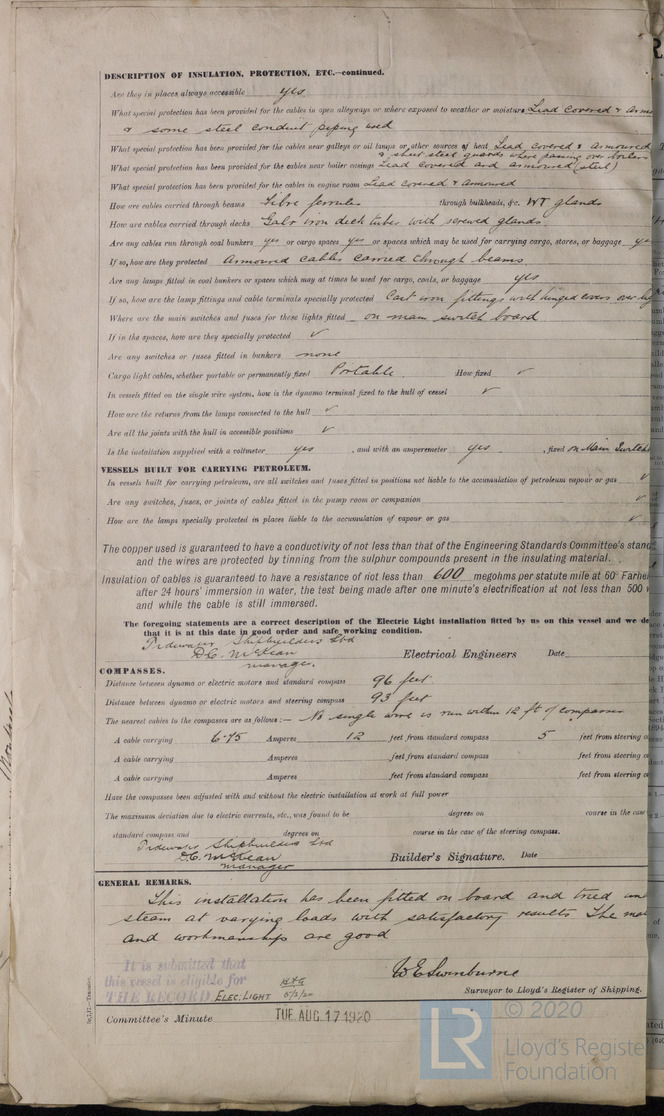 DESCRIPTION OF INSULATION, PROTECTION, ETC.—continued.
Are they in places always accessible yes
What special protection has been provided for the cables in open alleyways or where exposed to weather or moisture Lead covered & arm
& some steel conduit piping used
What special protection has been provided for the cables near galleys or oil lamps or other sources of heat Lead covered & armoured
& sheet steel guards where passing over boilers
What special protection has been provided for the cables near boiler casings Lead covered and armoured (steel)
What special protection has been provided for the cables in engine room Lead covered & armoured
How are cables carried through beams Fibre ferrules through bulkheads, &c. WT glands
How are cables carried through decks Galv iron deck tubes with screwed glands.
Are any cables run through coal bunkers yes or cargo spaces yes or spaces which may be used for carrying cargo, stores, or baggage ye
If so, how are they protected Armoured cables carried through beams
Are any lamps fitted in coal bunkers or spaces which may at times be used for cargo, coals, or baggage yes
If so, how are the lamp fittings and cable terminals specially protected Cast iron fittings with hinged covers over
Where are the main switches and fuses for these lights fitted on main switch board
If in the spaces, how are they specially protected ✓
Are any switches or fuses fitted in bunkers none
Cargo light cables, whether portable or permanently fixed Portable How fixed ✓
In vessels fitted on the single wire system, how is the dynamo terminal fixed to the hull of vessel ✓
How are the returns from the lamps connected to the hull ✓
Are all the joints with the hull in accessible positions ✓
Is the installation supplied with a voltmeter yes , and with an amperemeter yes , fixed on Main Switch
VESSELS BUILT FOR CARRYING PETROLEUM.
In vessels built for carrying petroleum, are all switches and fuses fitted in positions not liable to the accumulation of petroleum vapour or gas ✓
Are any switches, fuses, or joints of cables fitted in the pump room or companion ✓
How are the lamps specially protected in places liable to the accumulation of vapour or gas ✓
The copper used is guaranteed to have a conductivity of not less than that of the Engineering Standards Committee's stand
and the wires are protected by tinning from the sulphur compounds present in the insulating material.
Insulation of cables is guaranteed to have a resistance of not less than 600 megohms per statute mile at 60° Fahre
after 24 hours' immersion in water, the test being made after one minute's electrification at not less than 500
and while the cable is still immersed.
The foregoing statements are a correct description of the Electric Light installation fitted by us on this vessel and we de
that it is at this date in good order and safe working condition.
Tidewater Shipbuilders Ltd
D.C. McKean
manager. Electrical Engineers Date
COMPASSES.
Distance between dynamo or electric motors and standard compass 96 feet
Distance between dynamo or electric motors and steering compass 93 feet
The nearest cables to the compasses are as follows:— No single wire is run within 12 ft of compasses
A cable carrying 6.75 Amperes 12 feet from standard compass 5 feet from steering
A cable carrying Amperes feet from standard compass feet from steering
A cable carrying Amperes feet from standard compass feet from steering
Have the compasses been adjusted with and without the electric installation at work at full power
The maximum deviation due to electric currents, etc., was found to be degrees on course in the case
standard compass and degrees on course in the case of the steering compass.
Tidewater Shipbuilders Ltd
D.C. McKean
manager Builder's Signature. Date
GENERAL REMARKS.
This installation has been fitted on board and tried un
steam at varying loads with satisfactory results The ma
and workmanship are good
It is submitted that
this vessel is eligible for
THE RECORD ELEC: LIGHT
W E Swinburne
Surveyor to Lloyd's Register of Shipping.
Committee's Minute TUE. AUG. 17 1920
© 2020
LR
Lloyd's Registe
Foundation